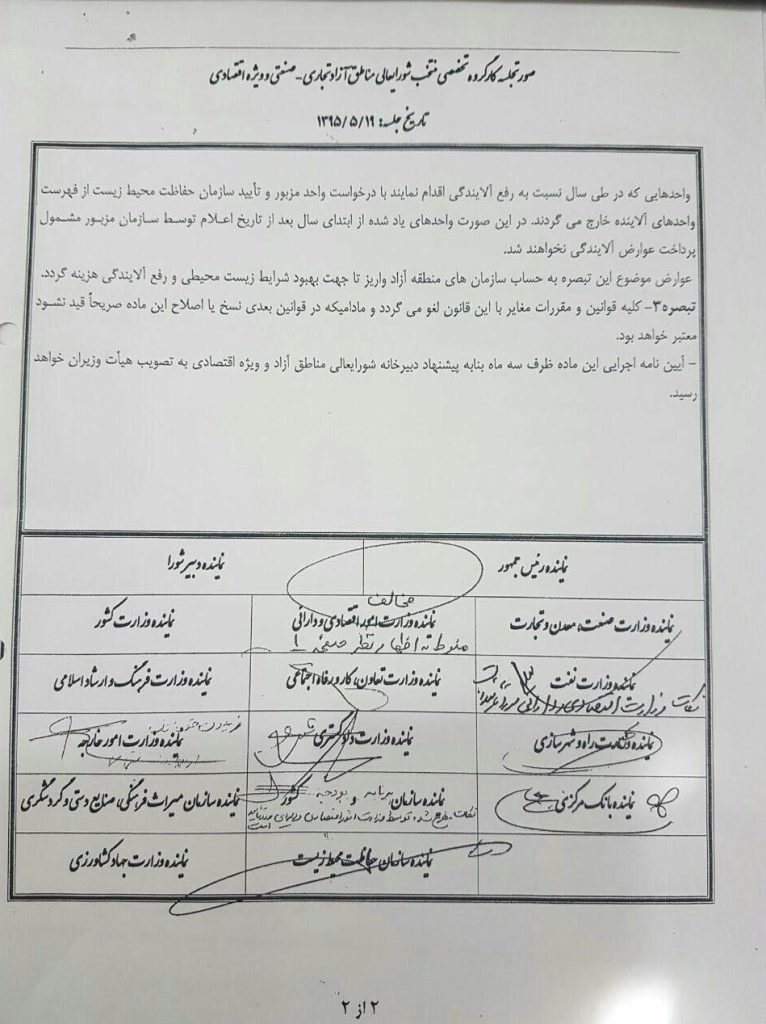 صورتجلسه کارگروه تخصصی منتخب شورایعالی مناطق آزاد تجاری - صنعتی و ویژه اقتصادی
تاریخ جلسه: ۱۳۹۵/۵/۱۹
واحدهایی که در طی سال نسبت به رفع آلایندگی اقدام نمایند با درخواست واحد مزبور و تأیید سازمان حفاظت محیط زیست از فهرست
واحدهای آلاینده خارج می گردند. در این صورت واحدهای یاد شده از ابتدای سال بعد از تاریخ اعلام توسط سازمان مزبور مشمول
پرداخت عوارض آلایندگی نخواهند شد.
عوارض موضوع این تبصره به حساب سازمان های منطقه آزاد واریز تا جهت بهبود شرایط زیست محیطی و رفع آلایندگی هزینه گردد.
تبصره ۳- کلیه قوانین و مقررات مغایر با این قانون لغو می گردد و مادامیکه در قوانین بعدی نسخ یا اصلاح این ماده صریحاً قید نشود
معتبر خواهد بود.
- آیین نامه اجرایی این ماده ظرف سه ماه بنابه پیشنهاد دبیرخانه شورایعالی مناطق آزاد و ویژه اقتصادی به تصویب هیأت وزیران خواهد
رسید.
نماینده رئیس جمهور
نماینده دبیر شورا
مخالف
نماینده وزارت صنعت، معدن و تجارت
نماینده وزارت امور اقتصادی و دارائی
نماینده وزارت کشور
منوط به اظهار نظر صفحه ۱
نماینده وزارت نفت
نماینده وزارت تعاون، کار و رفاه اجتماعی
نماینده وزارت فرهنگ و ارشاد اسلامی
نکات وزارت اقتصادی و دارائی
نماینده وزارت راه و شهرسازی
نماینده وزارت دادگستری
نماینده وزارت امور خارجه
نماینده بانک مرکزی
نماینده سازمان برنامه و بودجه کشور
نماینده سازمان میراث فرهنگی، صنایع دستی و گردشگری
نکات مطرح شده توسط وزارت امور اقتصادی و دارایی
نماینده سازمان حفاظت محیط زیست
نماینده وزارت جهاد کشاورزی
۲ از ۲